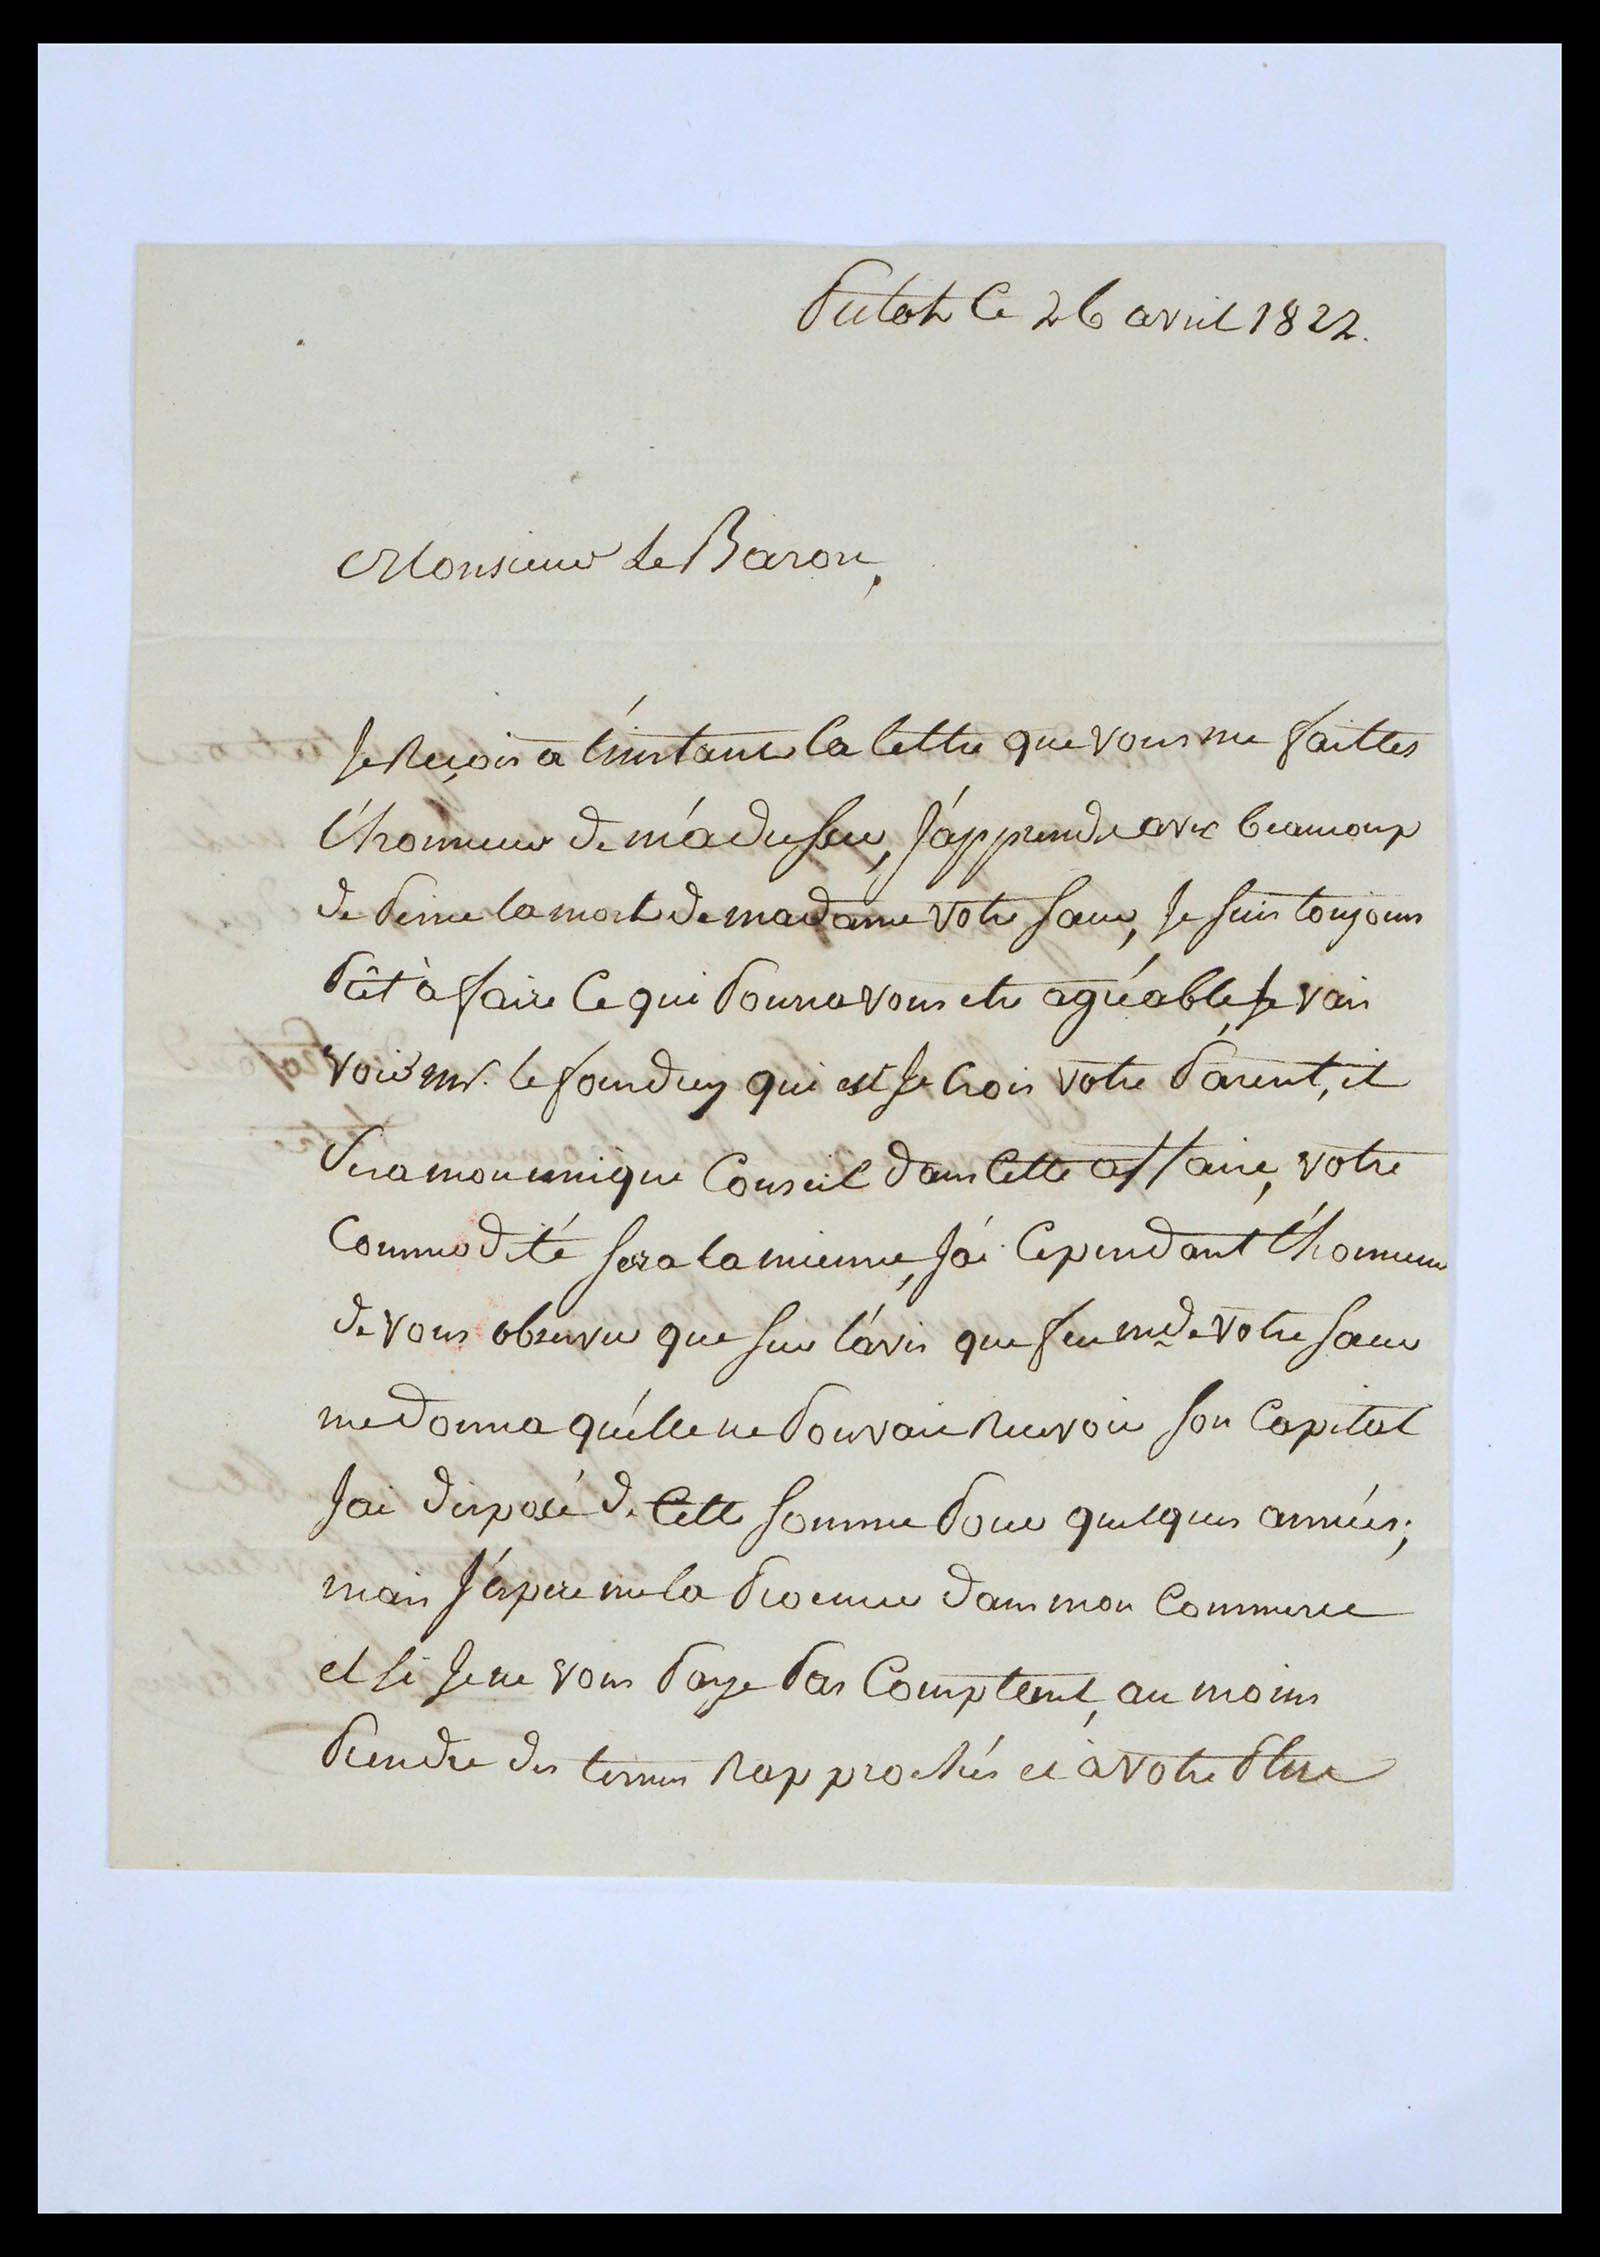 Putot le 26 avril 1822.
Monsieur Le Baron,
Je Reçois a l'instant la lettre que vous me faittes
l'honneur de m'adresser, J'apprends avec beaucoup
de peine la mort de madame votre sœur, Je suis toujours
prêt à faire ce qui pourra vous etre agréable, Je vais
voir mr. le foudrey qui est Je crois votre parent, il
sera mon unique Conseil dans cette affaire, votre
Commodité sera la mienne, J'ai cependant l'honneur
de vous observer que sur l'avis que feu mde votre sœur
me donna qu'elle ne pouvait Recevoir son Capital
J'ai disposé de cette somme pour quelques années;
mais J'éspere me la procurer dans mon Commerce
et si Je ne vous paye pas Comptant, au moins
prendre des termes Rapprochés et à votre plus